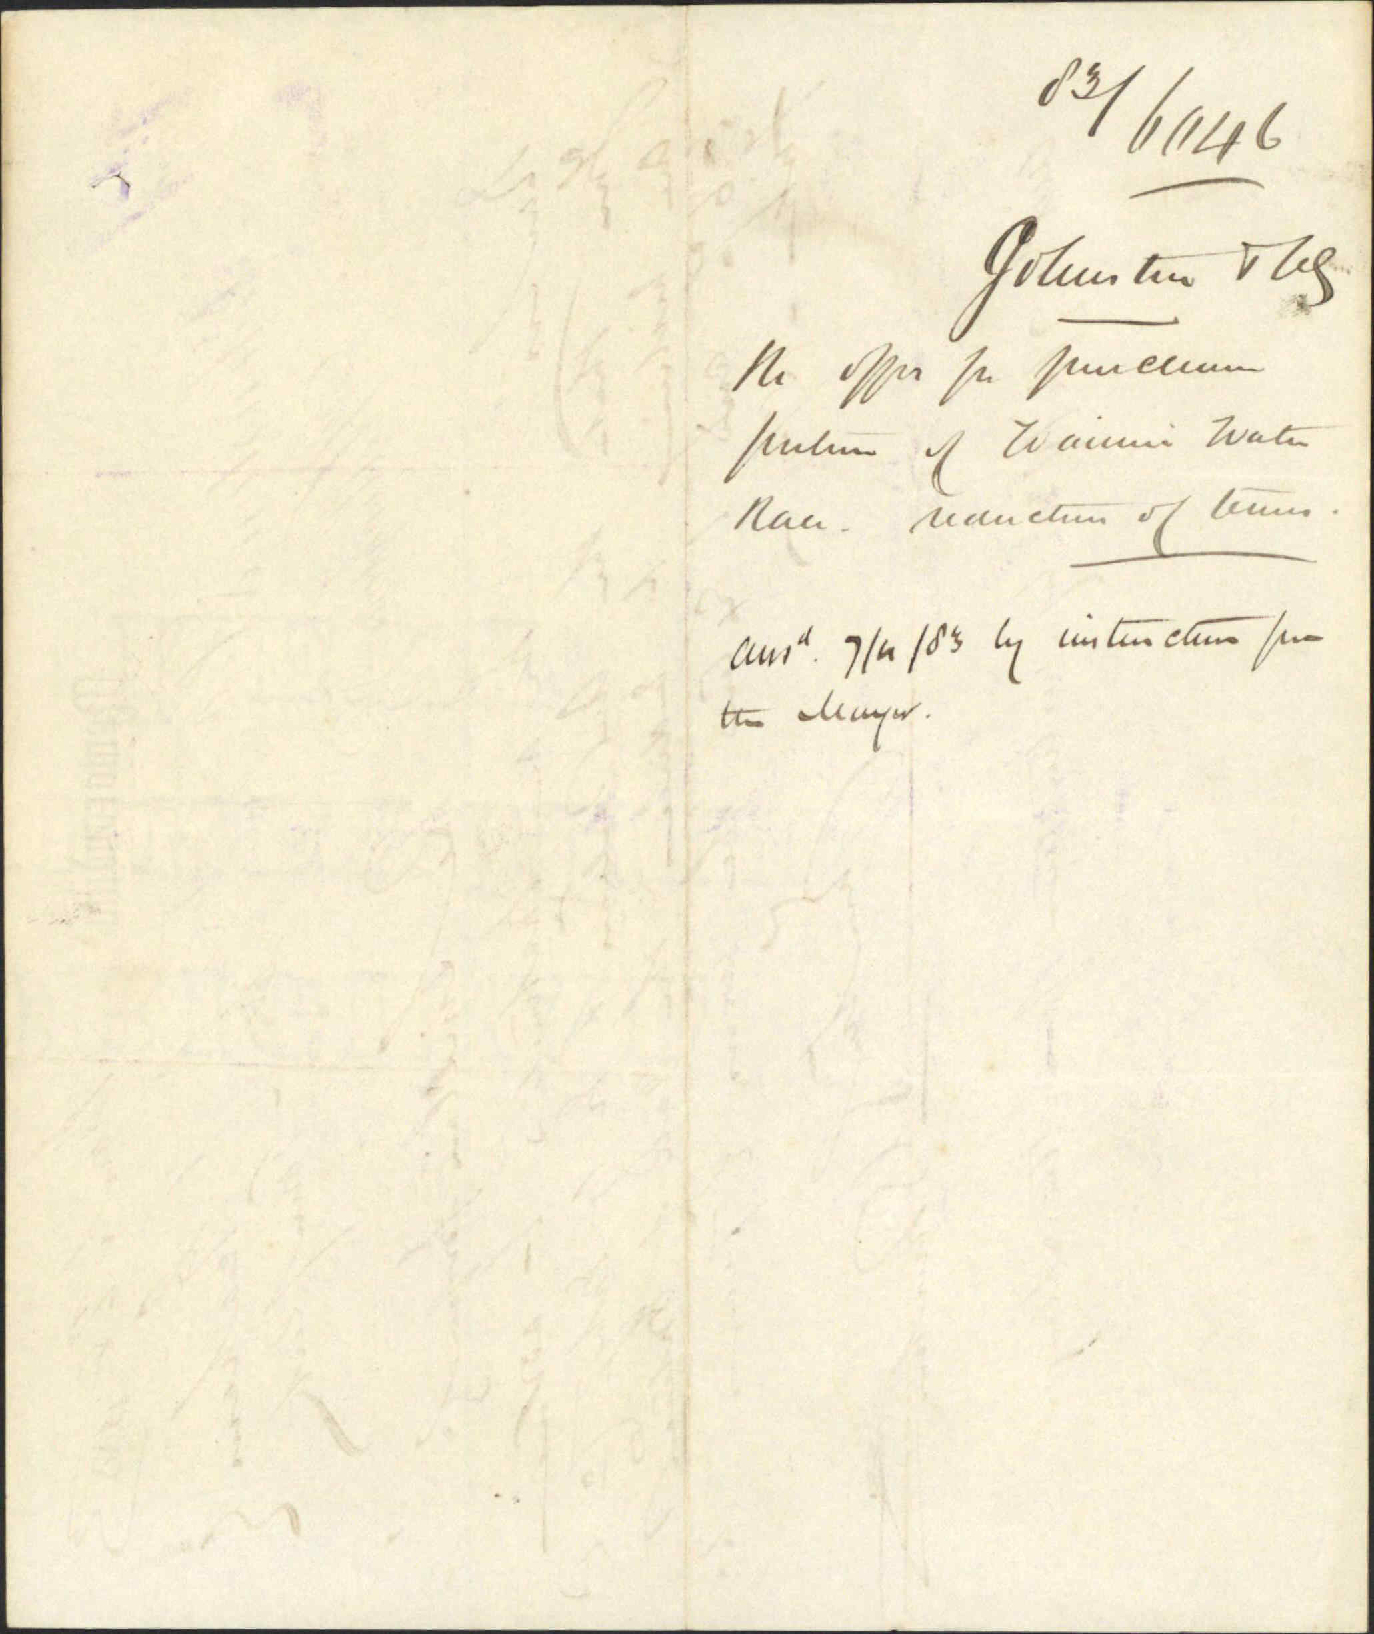 83/1046
Johnston & Co
Re offer for purchase
portion of Wainui Water
Race. reduction of terms.
Ansd. 7/11/83 by instruction from
the Mayor.